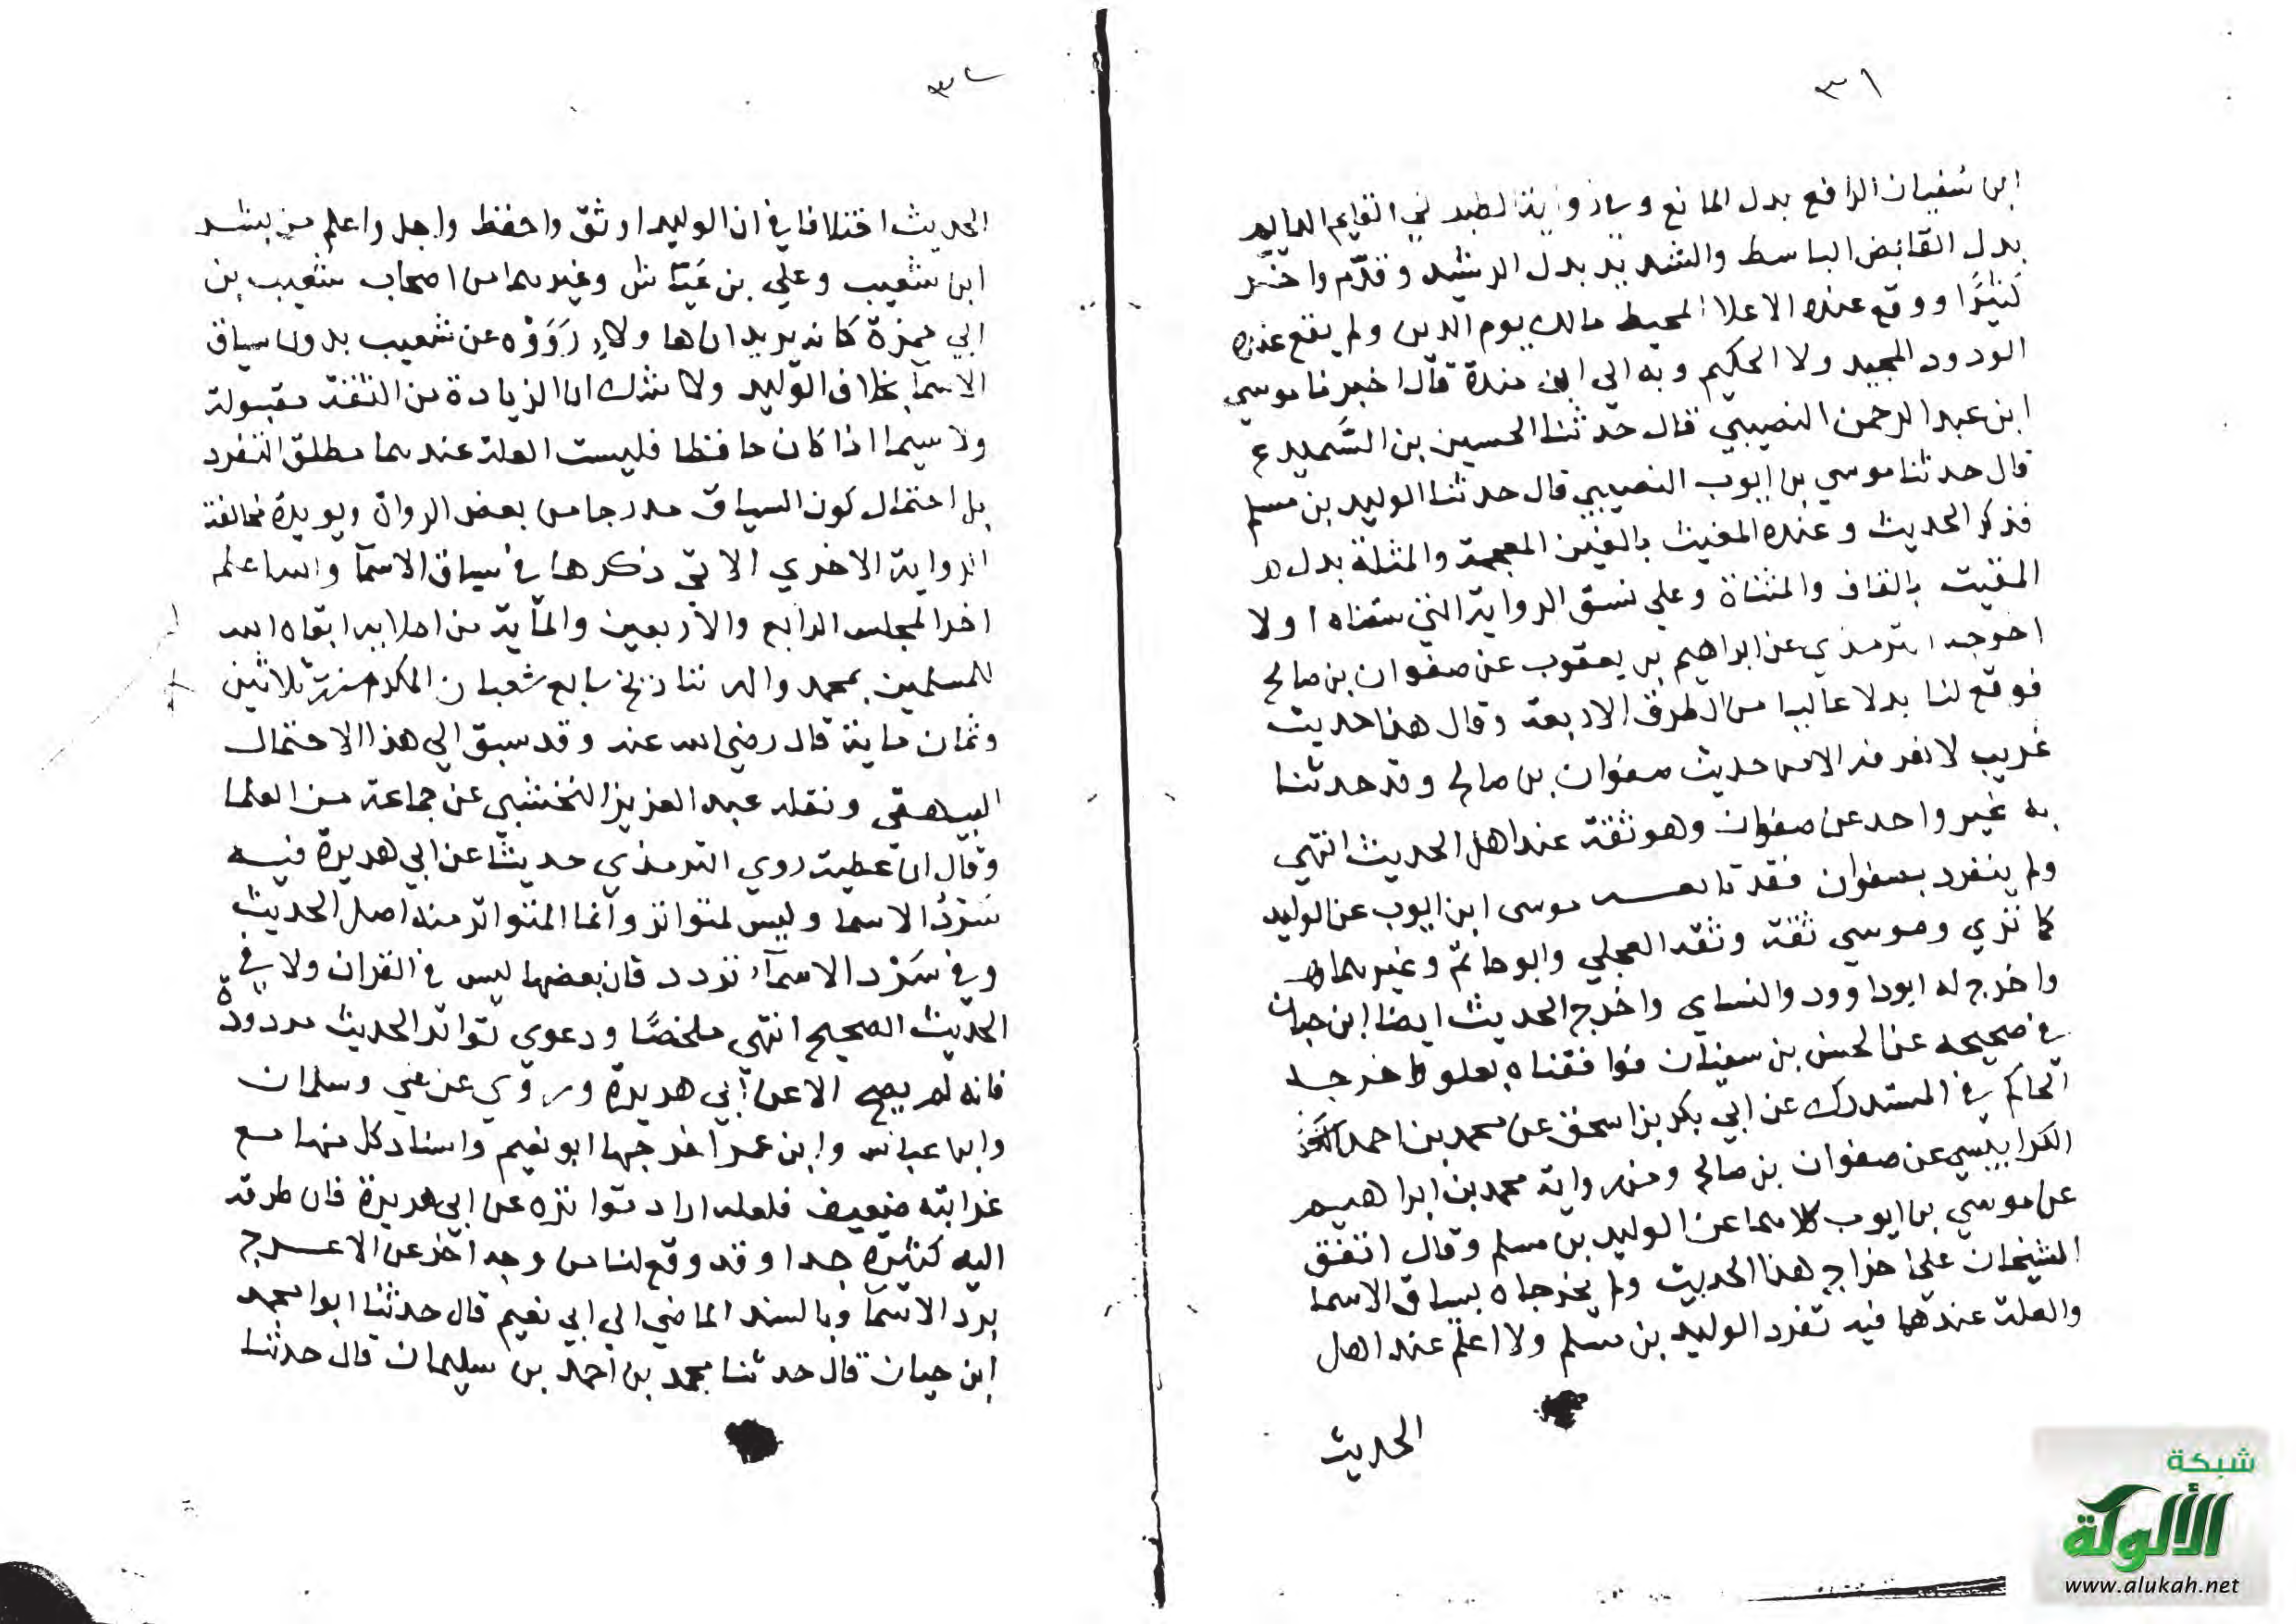 ٣١
ابن سفيان الرافع بدل المانع وساير رواية الطبراني القايم الدايم
بدل القابض الباسط والشديد بدل الرشيد وقدّم واخر
كثيرًا ووقع عنده الاعلا المحيط مالك يوم الدين ولم يقع عنده
الودود المجيد ولا الحكيم وبه الي ابن مندة قال اخبرنا موسي
ابن عبد الرحمن النصيبي قال حدثنا الحسين بن السَّميدع
قال حدثنا موسي بن ايوب النصيبي قال حدثنا الوليد بن مسلم
فذكر الحديث وعنده المغيث بالغين المعجمة والمثلثة بدل
المقيت بالقاف والمثناة وعلي نسق الرواية التي سقناها اولا
اخرجه الترمذي عن ابراهيم بن يعقوب عن صفوان بن صالح
فوقع لنا بدلا عاليا من الطرق الاربعة وقال هذا حديث
غريب لا نعرفه الا من حديث صفوان بن صالح وقد حدثنا
به غير واحد عن صفوان وهو ثقة عند اهل الحديث انتهي
ولم ينفرد به صفوان فقد تابعه موسى ابن ايوب عن الوليد
كما تري وموسي ثقة وثقه العجلي وابو حاتم وغيرهما
واخرج له ابو داوود والنساي واخرج الحديث ايضا ابن حبان
في صحيحه عن الحسن بن سفيان فوافقناه بعلو واخرجه
الحاكم في المستدرك عن ابي بكر بن اسحق عن محمد بن احمد
الكرابيسي عن صفوان بن صالح ومن رواية محمد بن ابراهيم
عن موسي بن ايوب كلاهما عن الوليد بن مسلم وقال اتفق
الشيخان علي اخراج هذا الحديث ولم يخرجاه بسياق الاسما
والعلة عندهما فيه تفرد الوليد بن مسلم ولا اعلم عند اهل
الحديث
٣٢
الحديث اختلافا في ان الوليد اوثق واحفظ واجل واعلم من بشر
ابن شعيب وعلي بن عَيّاش وغيرهما من اصحاب شعيب بن
ابي حمزة كانه يريد ان هاولاء رَوَوْه عن شعيب بدون سياق
الاسمآ بخلاف الوليد ولا شك ان الزيادة من الثقة مقبولة
ولا سيما اذا كان حافظا فليست العلة عندهما مطلق التفرد
بل احتمال كون السياق مدرجا من بعض الرواة ويويده مخالفة
الرواية الاخري الاتي ذكرها في سياق الاسمآ والله اعلم
اخر المجلس الرابع والاربعين والمآية من املايه ابقاه الله
للمسلمين بمحمد واله بتاريخ سابع شعبان المكرم سنة ثلاثين
وثمان ماية قال رضي الله عنه وقد سبق الي هذا الاحتمال
البيهقي ونقله عبد العزيز النخشبي عن جماعة من العلما
وقال ابن عطية روي الترمذي حديثا عن ابي هريرة فيه
سَرْدُ الاسما وليس لمتواتر وانما المتواتر منه اصل الحديث
وفي سَرْد الاسمآء تردد فان بعضها ليس في القران ولا في
الحديث الصحيح انتهي ملخصًا ودعوي تواتر الحديث مردودة
فانه لم يصح الا عن ابي هريرة وروي عن علي وسلمان
وابن عباس وابن عمر اخرجها ابو نعيم واسناد كل منها مع
غرابته ضعيف فلعله اراد تواتره عن ابي هريرة فان طرقه
اليه كثيرة جدا وقد وقع لنا من وجه اخر عن الاعرج
برد الاسمآ وبالسند الماضي الي ابي نعيم قال حدثنا ابو محمد
ابن حيان قال حدثنا محمد بن احمد بن سليمان قال حدثنا
شبكة
الألوكة
www.alukah.net